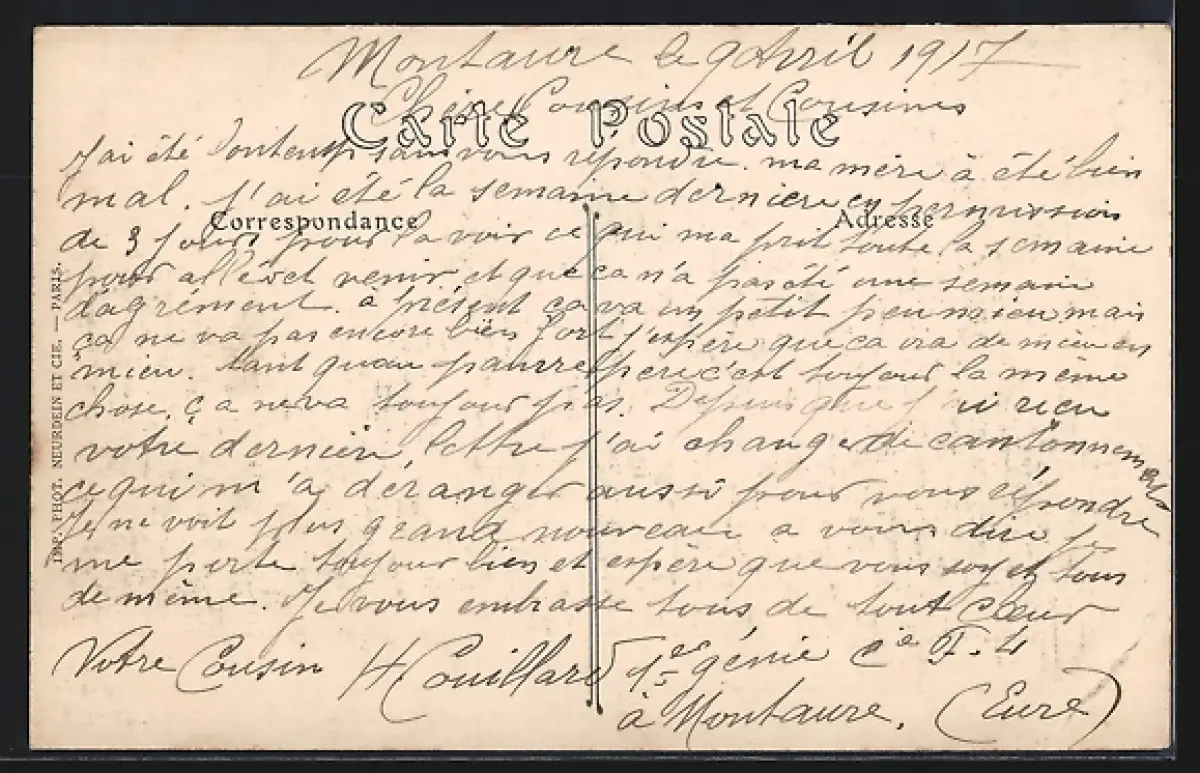 Montaure le 9 Avril 1917
Chère Cousins et Cousines
Carte Postale
J'ai été lontemp sans vous répondre. ma mère à été bien
mal. j'ai été la semaine dernière en permission
Correspondance
Adresse
de 3 jours pour la voir ce qui ma prit toute la semaine
pour allé et venir et que ça n'a pas été une semaine
d'agrément. à présent ça va un petit peu mieu mais
ça ne va pas encore bien fort j'espère que ca ira de mieu en
mieu. tant quau pauvre père c'est toujour la même
chose, ça ne va toujour pas. Depuis que j'ai recu
votre dernière lettre j'ai changer de cantonnement
ce qui m'a déranger aussi pour vous répondre
Je ne voit plus grand nouveau a vous dire je
me porte toujour bien et espère que vous soyez tous
de même. Je vous embrasse tous de tout cœur
Votre Cousin H Couillard 1er génie Cie F. 4
à Montaure. (Eure)
IMP. PHOT. NEURDEIN ET CIE. — PARIS.